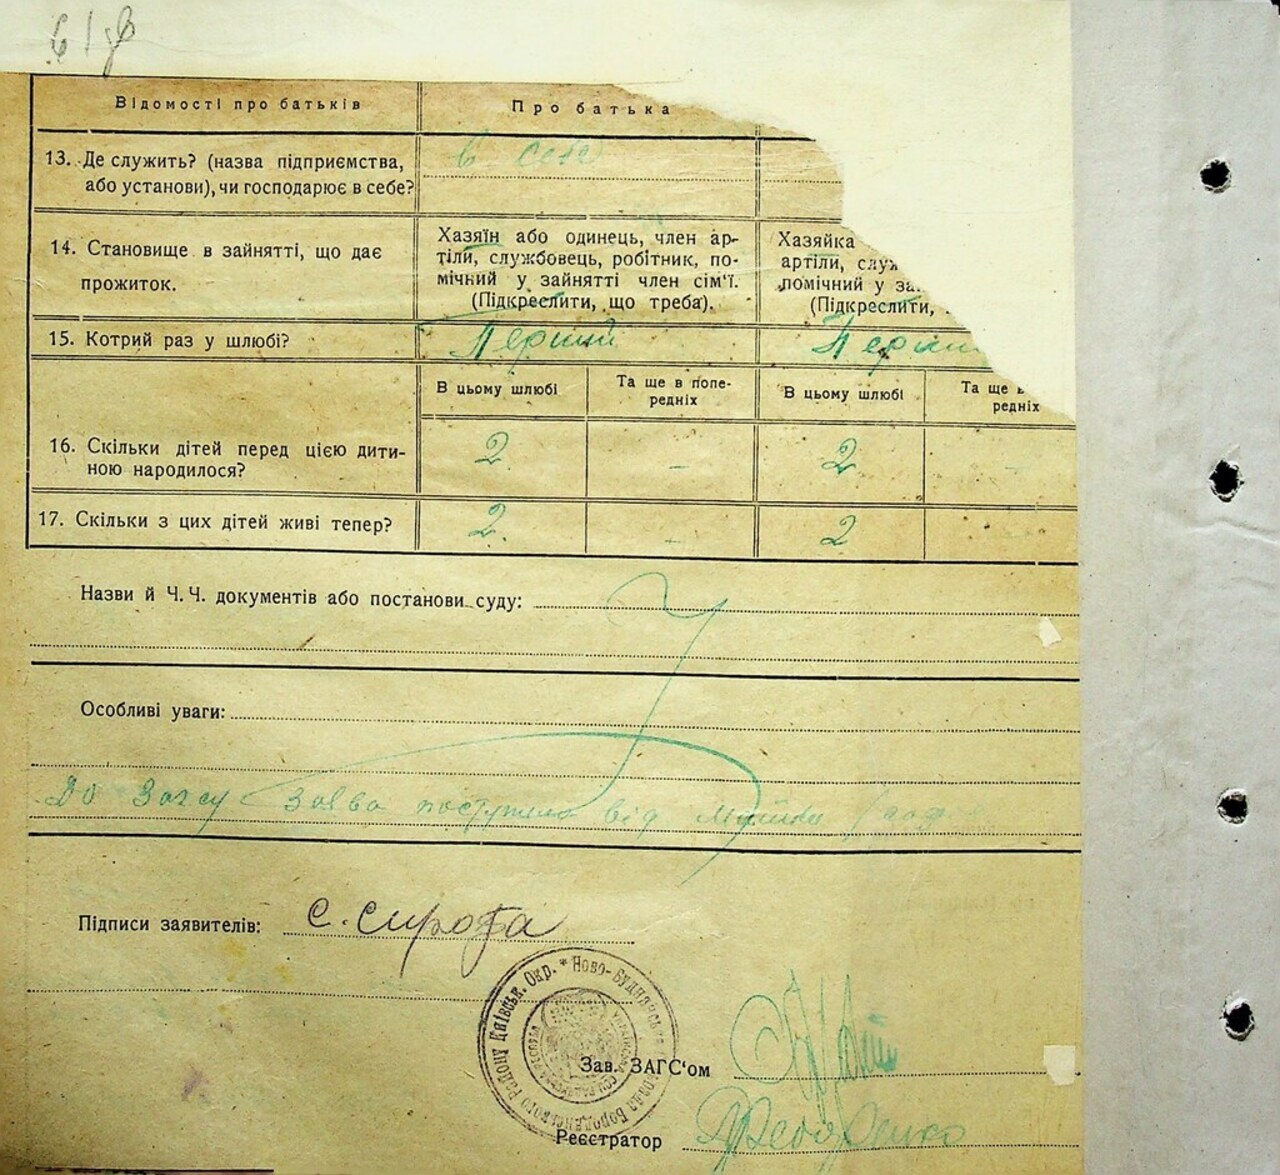 Відомості про батьків
Про батька
13. Де служить? (назва підприємства,
або установи), чи господарює в себе?
в себе
14. Становище в зайнятті, що дає
прожиток.
Хазяїн або одинець, член ар-
тіли, службовець, робітник, по-
мічний у зайнятті член сім'ї.
(Підкреслити, що треба).
Хазяйка
артіли, служ
помічний у за
(Підкреслити,
15. Котрий раз у шлюбі?
Перший
Перши
В цьому шлюбі
Та ще в попе-
редніх
В цьому шлюбі
Та ще в
редніх
16. Скільки дітей перед цією дити-
ною народилося?
2
-
2
-
17. Скільки з цих дітей живі тепер?
2
-
2
Назви й Ч.Ч. документів або постанови суду:
Особливі уваги:
До Загсу заява поступила від
Підписи заявителів: С. Сирота
Ново-Буднянська Рада Бородянського Району Київськ. Окр. *
Зав. ЗАГС'ом
Реєстратор